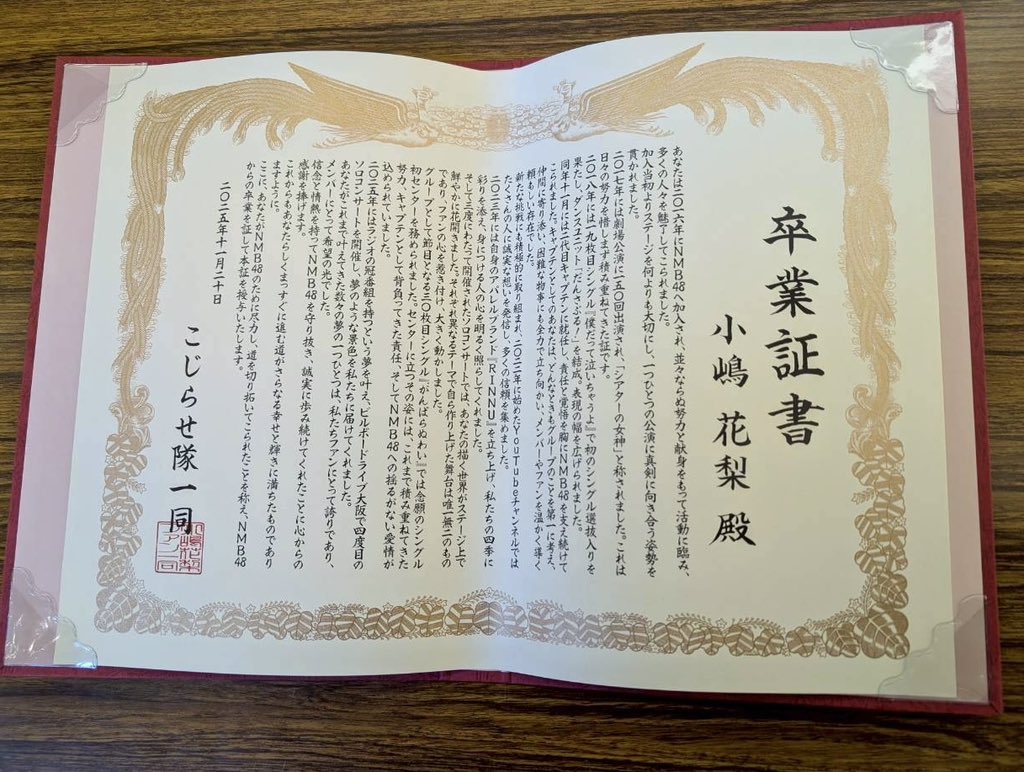 卒業証書
小嶋 花梨 殿
あなたは二〇一六年にNMB48へ加入され、並々ならぬ努力と献身をもって活動に臨み、
多くの人々を魅了してこられました。
加入当初よりステージを何よりも大切にし、一つひとつの公演に真剣に向き合う姿勢を
貫かれました。
二〇一七年には劇場公演に一五〇回出演され、「シアターの女神」と称されました。これは
日々の努力を惜しまず積み重ねてきた証です。
二〇一八年には一九枚目シングル『僕だって泣いちゃうよ』で初のシングル選抜入りを
果たし、ダンスユニット「だんさぶる!」を結成。表現の幅を広げられました。
同年十一月には二代目キャプテンに就任し、責任と覚悟を胸にNMB48を支え続けて
こられました。キャプテンとしてのあなたは、どんなときもグループのことを第一に考え、
仲間に寄り添い、困難な物事にも全力で立ち向かい、メンバーやファンを温かく導く
頼もしい存在でした。
新たな挑戦にも積極的に取り組まれ、二〇二二年に始めたYouTubeチャンネルでは
たくさんの人に誠実な想いを発信し、多くの信頼を集めました。
二〇二三年には自身のアパレルブランド『RINNU』を立ち上げ、私たちの四季に
彩りを添え、身につける人の心を明るく照らしてくれました。
そして三度にわたって開催されたソロコンサートでは、あなたの描く世界がステージ上で
鮮やかに花開きました。それぞれ異なるテーマで自ら作り上げた舞台は唯一無二のもの
であり、ファンの心を惹き付け、大きく動かしました。
グループとして節目となる三〇枚目シングル『がんばらぬわい』では念願のシングル
初センターを務められました。センターに立つその姿には、これまで積み重ねてきた
努力、キャプテンとして背負ってきた責任、そしてNMB48への揺るがない愛情が
込められていました。
二〇二五年にはラジオの冠番組を持つという夢を叶え、ビルボードライブ大阪で四度目の
ソロコンサートを開催し、夢のような景色を私たちに届けてくれました。
あなたがこれまで叶えてきた数々の夢の一つひとつは、私たちファンにとって誇りであり、
メンバーにとって希望の光でした。
信念と情熱を持ってNMB48を守り抜き、誠実に歩み続けてくれたことに心からの
感謝を捧げます。
これからもあなたらしくまっすぐに進む道がさらなる幸せと輝きに満ちたものであり
ますように。
ここに、あなたがNMB48のために尽力し、道を切り拓いてこられたことを称え、NMB48
からの卒業を証して本証を授与いたします。
二〇二五年十一月二十日
こじらせ隊一同